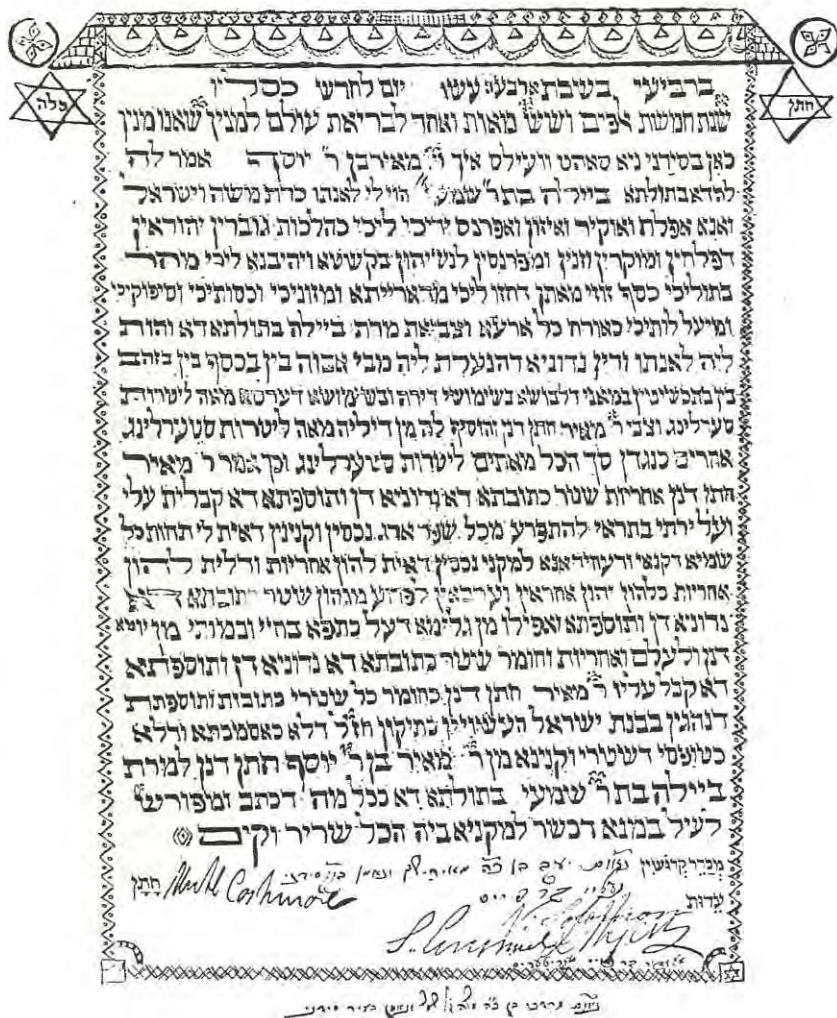 כלה
חתן
ברביעי בשבת ארבעה עשר יום לחדש כסליו
שנת חמשת אלפים ושש מאות ואחד לבריאת עולם למנין שאנו מנין
כאן בסידני ניא סאהט וועילס איך ר' מאיר בן ר' יוסף אמר לה
להדא בתולתא ביילה בת ר' שמעי הוי לי לאנתו כדת משה וישראל
ואנא אפלח ואוקיר ואיזון ואפרנס יתיכי ליכי כהלכות גוברין יהודאין
דפלחין ומוקרין וזנין ומפרנסין לנשיהון בקושטא ויהיבנא ליכי מוהר
בתוליכי כסף זוזי מאתן דחזו ליכי מדאורייתא ומזוניכי וכסותיכי וסיפוקיכי
ומיעל לותיכי כאורח כל ארעא וצביאת מרת ביילה בתולתא דא והות
ליה לאנתו ודין נדוניא דהנעלת ליה מבי אבוה בין בכסף בין בזהב
בין בתכשיטין במאני דלבושא בשימושי דירה ובשימושא דערסא מאה ליטרות
סטערלינג וצבי ר' מאיר חתן דנן והוסיף לה מן דיליה מאה ליטרות סטערלינג
אחרים כנגדן סך הכל מאתים ליטרות סטערלינג וכך אמר ר' מאיר
חתן דנן אחריות שטר כתובתא דא נדוניא דן ותוספתא דא קבלית עלי
ועל ירתי בתראי להתפרע מכל שפר ארג נכסין וקנינין דאית לי תחות כל
שמיא דקנאי ודעתיד אנא למקני נכסין דאית להון אחריות ודלית להון
אחריות כלהון יהון אחראין וערבאין לפרוע מנהון שטר כתובתא דא
נדוניא דן ותוספתא ואפילו מן גלימא דעל כתפא בחיי ובמותי מן יומא
דנן ולעלם ואחריות וחומר שטר כתובתא דא נדוניא דן ותוספתא
דא קבל עליו ר' מאיר חתן דנן כחומר כל שטרי כתובות ותוספתות
דנהגין בבנת ישראל העשויין כתיקון חז"ל דלא כאסמכתא ודלא
כטופסי דשטרי וקנינא מן ר' מאיר בן ר' יוסף חתן דנן למרת
ביילה בת ר' שמעי בתולתא דא ככל מה דכתב ומפורש
לעיל במנא דכשר למקניא ביה הכל שריר וקים
נאום יעקב בן
חתן
עדות